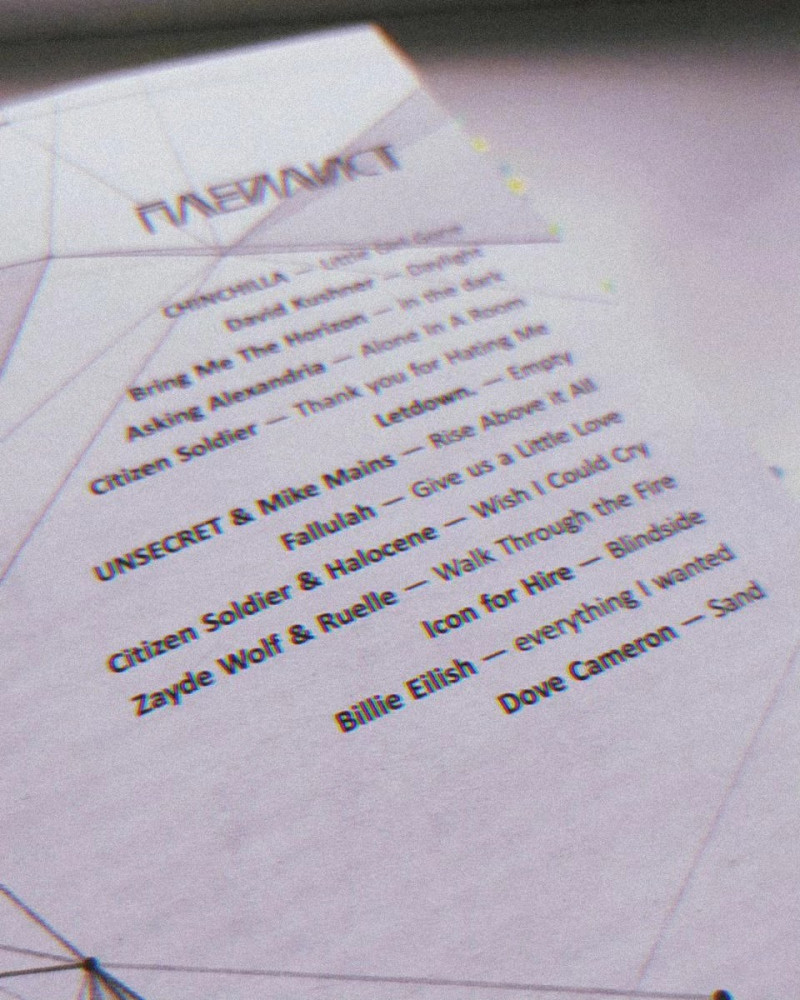 ПЛЕЙЛИСТ
CHINCHILLA — Little Girl Gone
David Kushner — Daylight
Bring Me The Horizon — in the dark
Asking Alexandria — Alone In A Room
Citizen Soldier — Thank you for Hating Me
Letdown. — Empty
UNSECRET & Mike Mains — Rise Above It All
Fallulah — Give us a Little Love
Citizen Soldier & Halocene — Wish I Could Cry
Zayde Wolf & Ruelle — Walk Through the Fire
Icon for Hire — Blindside
Billie Eilish — everything I wanted
Dove Cameron — Sand